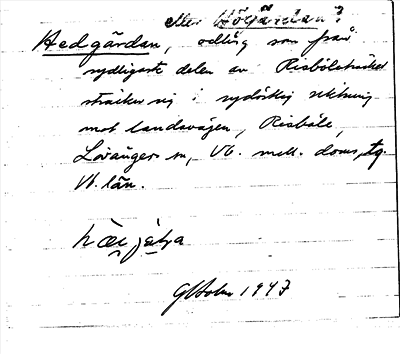 eller Högärdan?
Hedgärdan, odling som från
sydligaste delen av Risböleträsket
sträcker sig i sydöstlig riktning
mot landsvägen, Risböle,
Lövånger sn, Vb. mell. doms. tg.
Vb. län.
hæȷɑ̈ḷa
G Holm 1947